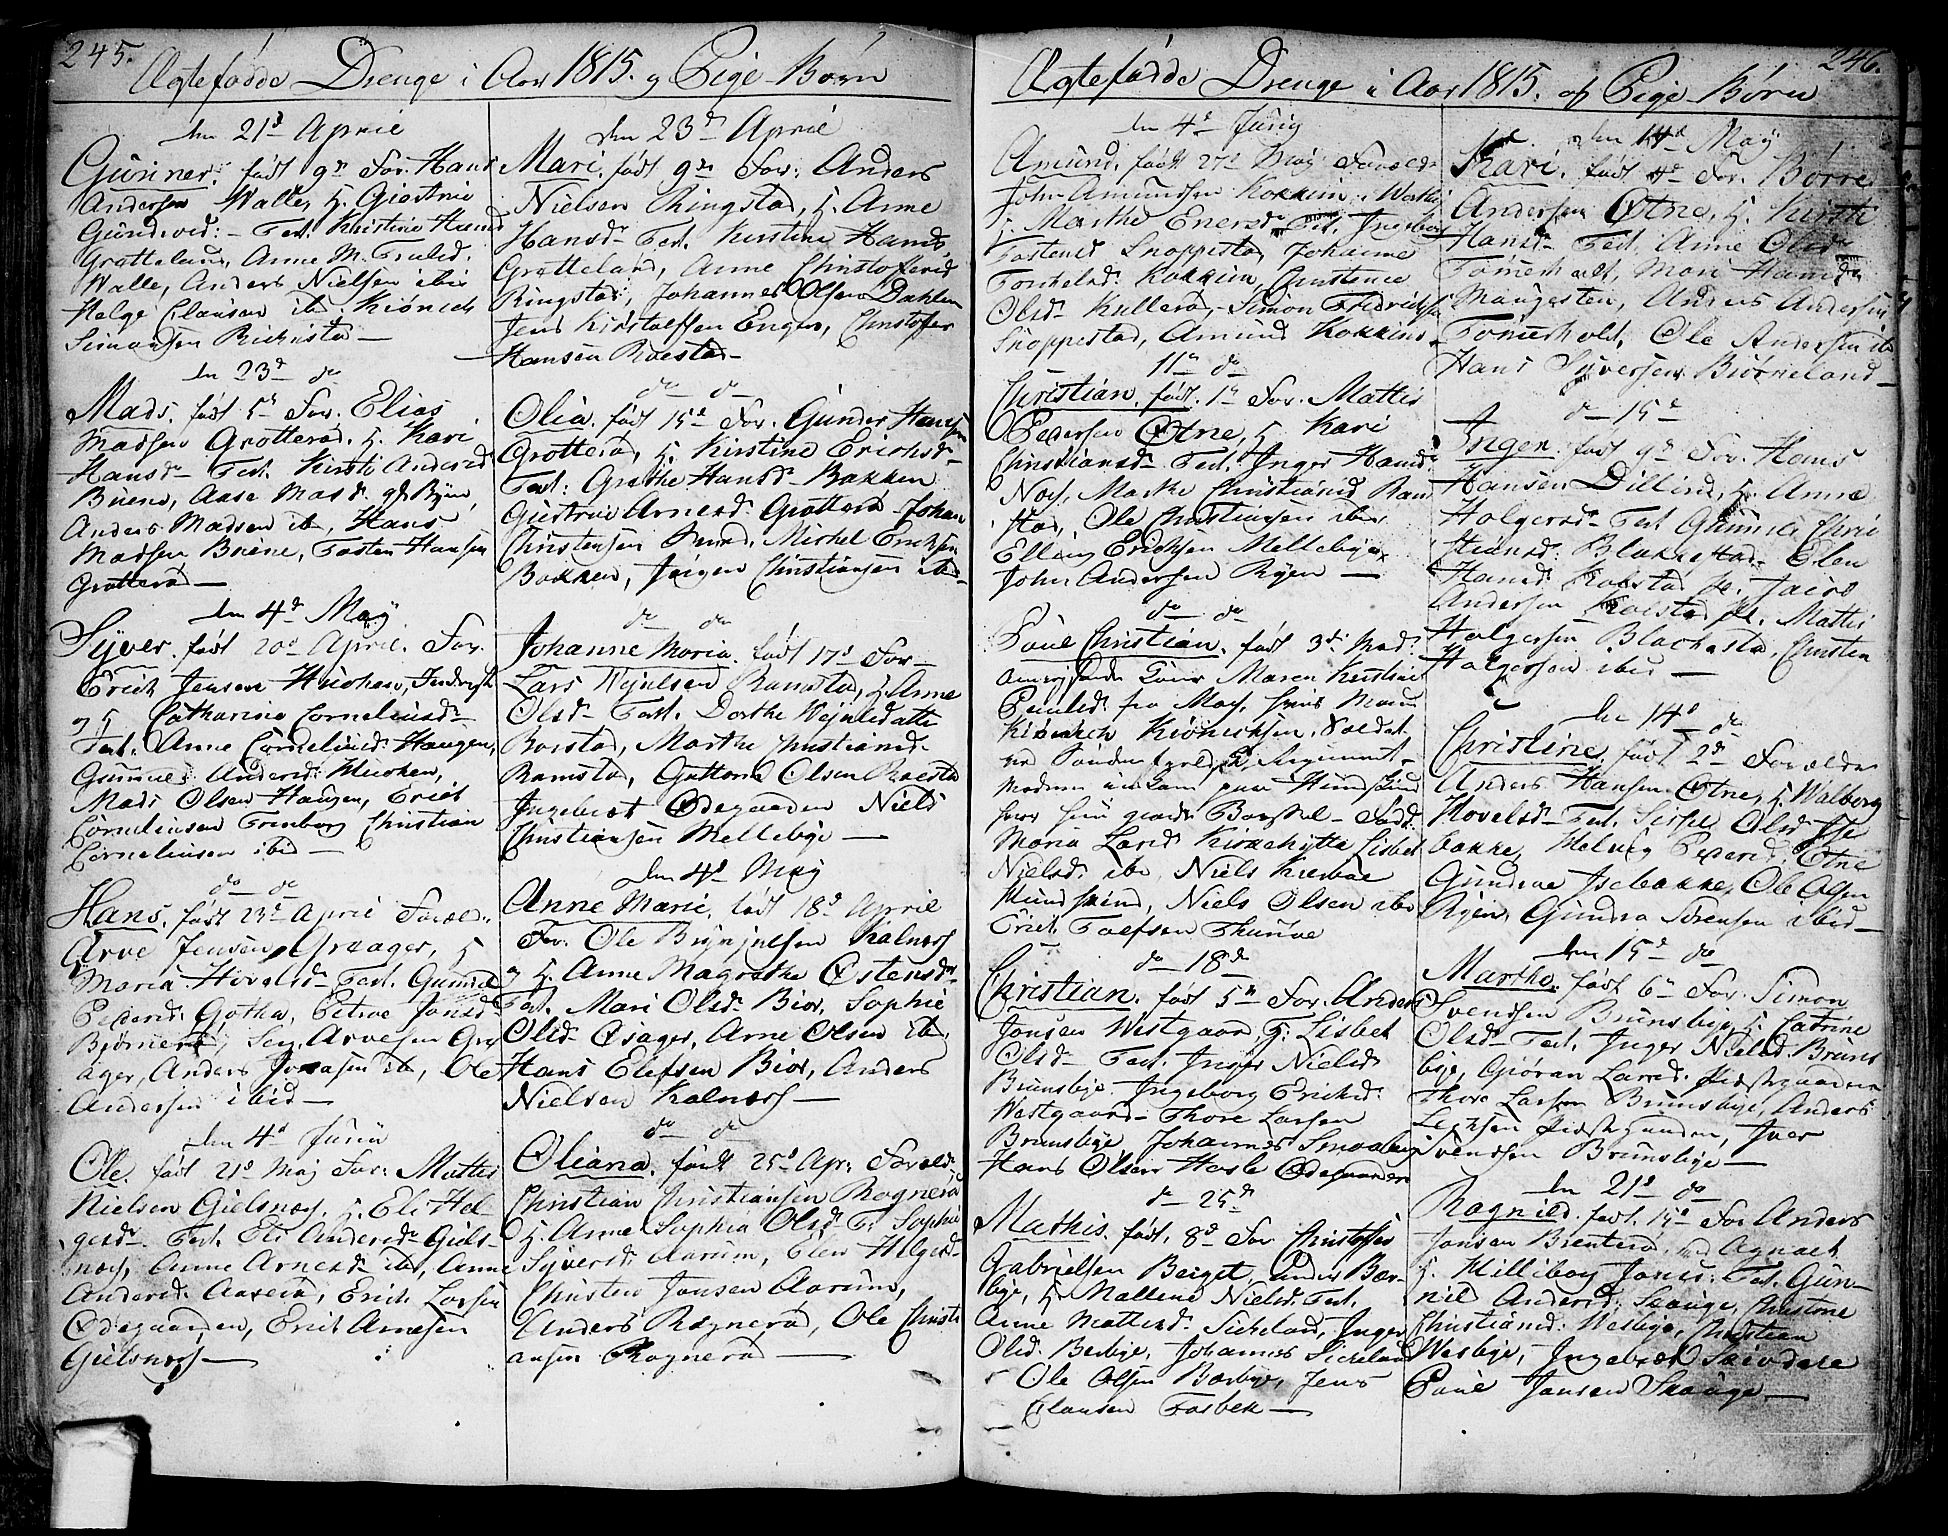 245.
Ægtefødde Drenge i Aar 1815. og Pige Børn
den 21d April
Gunner. født 9d For. Hans
Andersen Walle, H. Giøstrie
Gundersd: - Test. Kirstine Hansd
Grøtteland, Anne M. Trulsd.
Walle, Anders Nielsen ibid
Helge Clausen ib. Kiønich
Simonsen Richestad -
den 23d do
Mads. født 5d For. Elias
Madsen Grotterød. H. Kari
Hansd Test. Kirsti Andersd
Buene, Aase Masd.
Anders Madsen ib, Hans
Madsen Buene, Tosten Hansen
Grotterød -
den 4d May
Syver. født 20d April. For.
Erich Jensen Huchen,
og H. Catharine Corneliusd
Test. Anne Corneliusd. Haugen,
Gunnel Andersd. Huchen,
Mads Olsen Haugen, Erich
Corneliusen Trenborg Christian
Corneliusen ibid -
do do
Hans. født 23d April Foræld.
Arve Jensen Graager, H.
Maria Hovelsd Test. Gunnel
Pedersd. Gotha, Petrve Jonsd
Bjørnerd, Sey. Arvesen Gra
ager, Anders Jonasen ib, Ole
Andersen ibid -
den 4d Junii
Ole. født 21d Maj For: Mattis
Nielsen Gielsnæs, H. Eli Hel
gesd. Test. Eli Andersd Giels-
næs, Anne Arnesd ib, Anne
Andersd. Aaserød, Erich Larsen
Ødegaarden, Erich Arnesen
Gielsnæs -
den 23d April
Mari. født 9de For: Anders
Nielsen Ringstad, H. Anne
Hansd Test. Kirstine Hansd
Grøtteland, Anne Christoffersd
Ringstad, Johannes Olsen Dahlen
Jens Kirstoffsen Enger, Christoffer
Hansen Roestad -
do do
Olia. født 15d For. Gunder Hansen
Grotterød, H. Kirstine Erichsd
Test: Grethe Hansd Bakken
Giøstrue Arnesd Grotterød Johan
Christensen Michel Erichsen
Bakken, Jørgen Christiansen ibd
do do
Johanne Maria. født 17d For
Lars Wejulsen Ramstad, H. Anne
Olsd Test. Dorthe Wejulsdatte
Borstad, Marthe Christiansd.
Ramstad, Guttorm Olsen Roestad
Ingebret Ødegaarden Niels
Christiansen Mellebye -
den 4d May
Anne Marie. født 18d April
For. Ole Brynjulsen Kalnæss
og H. Anne Magrethe Østensdr
Test. Mari Olsd Biør, Sophie
Olsd Qsager, Arne Olsen ib,
Hans Elefsen Biør, Anders
Nielsen Kalnæss -
do do
Oliana. født 25d Apr. Foræld.
Christian Christiansen Rognerød
H. Anne Sophia Olsd T. Sophie
Syversd Aarum, Elen Helgesd
Christen Jonsen Aarum,
Anders Rognerød, Ole Christi
ansen Rognerød -
246.
Ægtefødde Drenge i Aar 1815. og Pige Børn
den 4d Junij
Amund. født 27d Maj Foræld.
John Amundsen Kokkim i Wester
H. Marthe Enersd Test. Ingebor
Tostensd Snoppestad Johanne
Torkelsd. Kokkim, Constance
Olsd Kullerød, Simon Fredrichsen
Snoppestad, Amund Kokkins.
11d do
Christian. født. 1d For. Mattis
Pedersen Øtne, H. Kari
Christiansd Test. Inger Hansd.
Noss, Marthe Christiansd Ram
stad, Ole Christiansen ibid
Elling Erichsen Mellebye,
John Andersen Ryen -
do do
Poul Christian. født 3d Mod.
Maren Kirstine
Poulsd. fra Moss, hvis Mand
Kiønich Kiønichsen, Soldat
ved Søndenfjeldske Regiment
Modren
Maria Larsd Kirkehytte Lisbet
Nielsd. ib, Niels Kierbøe
Niels Olsen ibd
Erich Tolfsen Thurøe
do 18d
Christian. født 5d For. Anders
Jonsen Westgaard, H: Lisbet
Olsd Test. Inger Nielsd
Brunsbye. Ingeborg Erichsd.
Westgaard Thore Larsen
Brunsbye Johannes Smaaberg
Hans Olsen Hasle Ødegaarden
do 25d
Mathis. født. 8d For Christoffer
Gabrielsen Berget, under Bør-
bye, H. Mallene Nielsd. Test.
Anne Mattisd. Sickeland, Inger
Olsd. Børbye, Johannes Sickeland
Ole Olsen Børbye, Jens
Clausen Torbek -
den 14d May
Kari. født For. Børre
Andersen Øtne, H. Kirsti
Hansd Test. Anne Olsd
Tomerholt, Mari Hansd
Maugesten, Anders Andersen,
Tomerholt, Ole Andersen ib
Hans Syversen Biørneland -
do 15d
Ingen. født 9d For. Hans
Hansen Dillind, H. Anne
Holgersd Test Gunnel Chri
stiansd. Blakkestad Elen
Hansd Kolstad Jacob
Andersen Kolstad Mattis
Holgersen Blachestad, Christen
Holgersen ibid -
den 14d do
Christine, født 2d Forælder
Anders Hansen Øtne, H. Walborg
Hovelsd Test. Sispe Olsd Ise
bakke, Helvig Pedersd. Øtne
Gundroe Isebakke, Ole Olsen
Ryen, Gundro Sørensen ibid -
den 15d do
Marthe. født 6d For. Simon
Svendsen Brunsbye, H. Catrine
Olsd Test. Inger Nielsd. Bruns
bye, Giøran Larsd. Prestegaarden
Thore Larsen Brunsbye, Anders
Prestegaarden, Iver
Svendsen Brunsbye -
den 21d do
Rognild. født. 15d For Anders
Jonsen Brenterød,
H. Willibog Jonsd: Test. Gun-
nild Andersd. Skouge, Christine
Christiansd: Wesbye, Christian
Wesbye, Ingebret
Poul Jonsen Skouge -